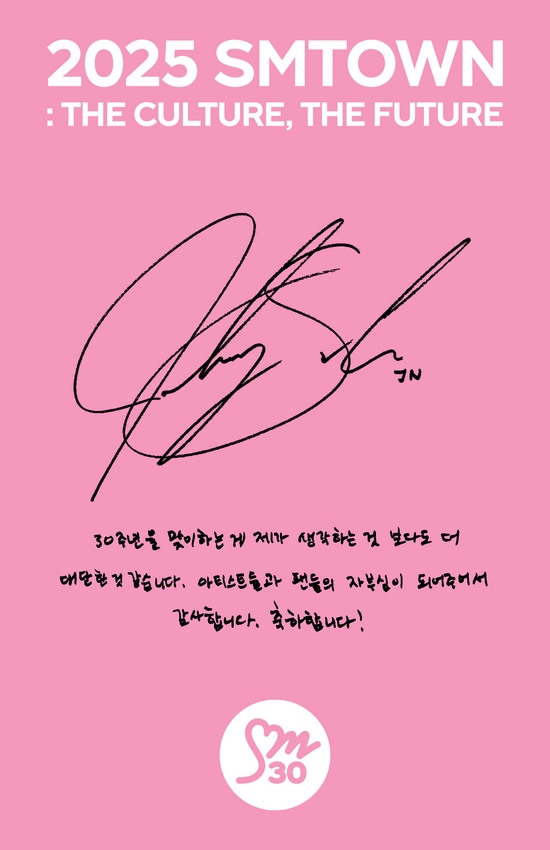 2025 SMTOWN
: THE CULTURE, THE FUTURE
JN
30주년을 맞이하는게 제가 생각하는 것 보다도 더
대단한 것 같습니다. 아티스트들과 팬들의 자부심이 되어주어서
감사합니다. 축하합니다!
Sm
30